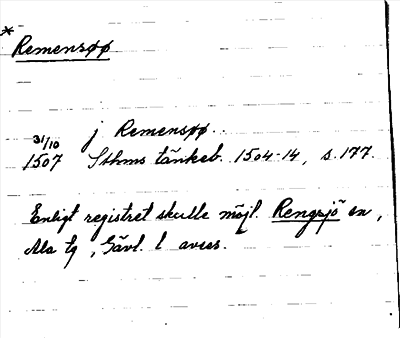 *
Remensøø
31/10 j Remensøø.
1507 Sthms tänkeb. 1504-14, s. 177.
Enligt registret skulle möjl. Rengsjö sn,
Ala tg, Gävl. l avses.